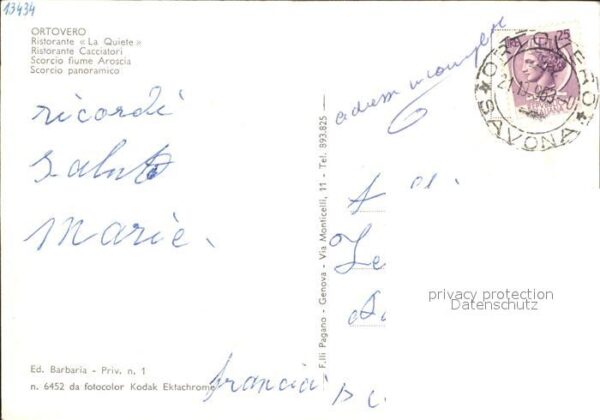 13434
ORTOVERO
Ristorante « La Quiete »
Ristorante Cacciatori
Scorcio fiume Aroscia
Scorcio panoramico
ricordi
Saluti
Marie.
Ed. Barbaria - Priv. n. 1
n. 6452 da fotocolor Kodak Ektachrome
F.lli Pagano - Genova - Via Monticelli, 11 - Tel. 893.825
25
ORTOVERO
SAVONA
privacy protection
Datenschutz
francia